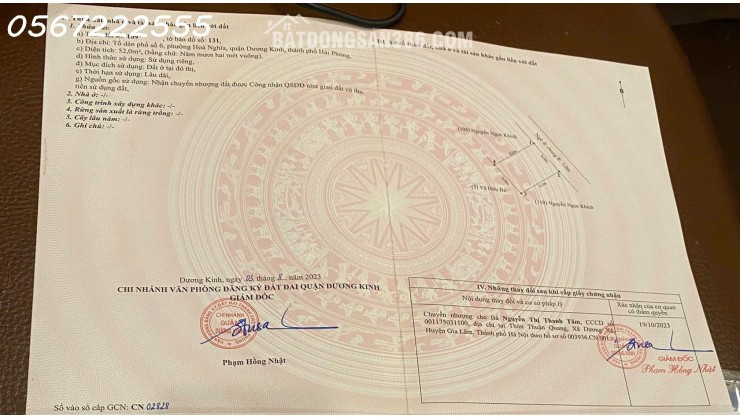 0567222555
BATDONGSAN386.COM
b) Địa chỉ: Tổ dân phố số 6, phường Hoà Nghĩa, quận Dương Kinh, thành phố Hải Phòng,
c) Diện tích: 52,0m², (bằng chữ: Năm mươi hai mét vuông),
d) Hình thức sử dụng: Sử dụng riêng,
đ) Mục đích sử dụng: Đất ở tại đô thị,
e) Thời hạn sử dụng: Lâu dài,
g) Nguồn gốc sử dụng: Nhận chuyển nhượng đất được Công nhận QSDĐ như giao đất có thu
tiền sử dụng đất,
2. Nhà ở: -/-
3. Công trình xây dựng khác: -/-
4. Rừng sản xuất là rừng trồng: -/-
5. Cây lâu năm: -/-
6. Ghi chú: -/-
Nguyễn Ngọc Khánh
Vũ Hữu
(110) Nguyễn Ngọc Khánh
Dương Kinh, ngày 03 tháng 8 năm 2023
CHI NHÁNH VĂN PHÒNG ĐĂNG KÝ ĐẤT ĐAI QUẬN DƯƠNG KINH
GIÁM ĐỐC
CHI NHÁNH
QUẬN
DƯƠNG KINH
Phạm Hồng Nhật
Số vào sổ cấp GCN: CN 02828
IV. Những thay đổi sau khi cấp giấy chứng nhận
Nội dung thay đổi và cơ sở pháp lý
Xác nhận của cơ quan
có thẩm quyền
Chuyển nhượng cho Bà Nguyễn Thị Thanh Tâm, CCCD số
001175031100, địa chỉ tại Thôn Thuận Quang, Xã Dương Xá,
Huyện Gia Lâm, Thành phố Hà Nội theo hồ sơ 003936.CN.001
19/10/2023
GIÁM ĐỐC
Phạm Hồng Nhật